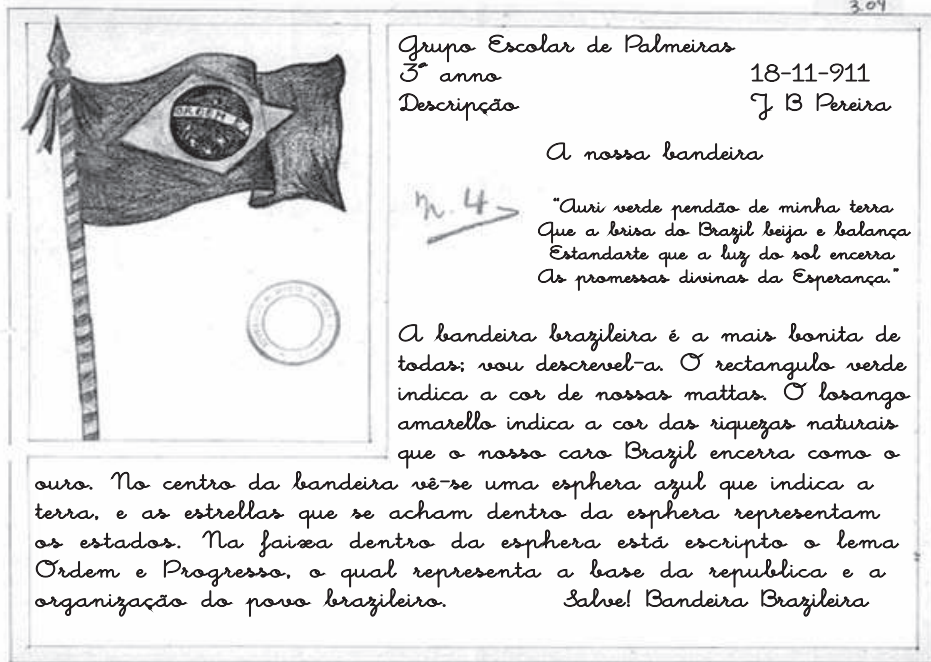 3.04
Grupo Escolar de Palmeiras
3º anno
18-11-911
Descripção
J B Pereira
A nossa bandeira
ORDEM E P
n. 4
"Auri verde pendão de minha terra
Que a brisa do Brazil beija e balança
Estandarte que a luz do sol encerra
As promessas divinas da Esperança."
A bandeira brazileira é a mais bonita de
todas; vou descrevel-a. O rectangulo verde
indica a cor de nossas mattas. O losango
amarello indica a cor das riquezas naturais
que o nosso caro Brazil encerra como o
ouro. No centro da bandeira vê-se uma esphera azul que indica a
terra, e as estrellas que se acham dentro da esphera representam
os estados. Na faixa dentro da esphera está escripto o lema
Ordem e Progresso, o qual representa a base da republica e a
organização do povo brazileiro. Salve! Bandeira Brazileira